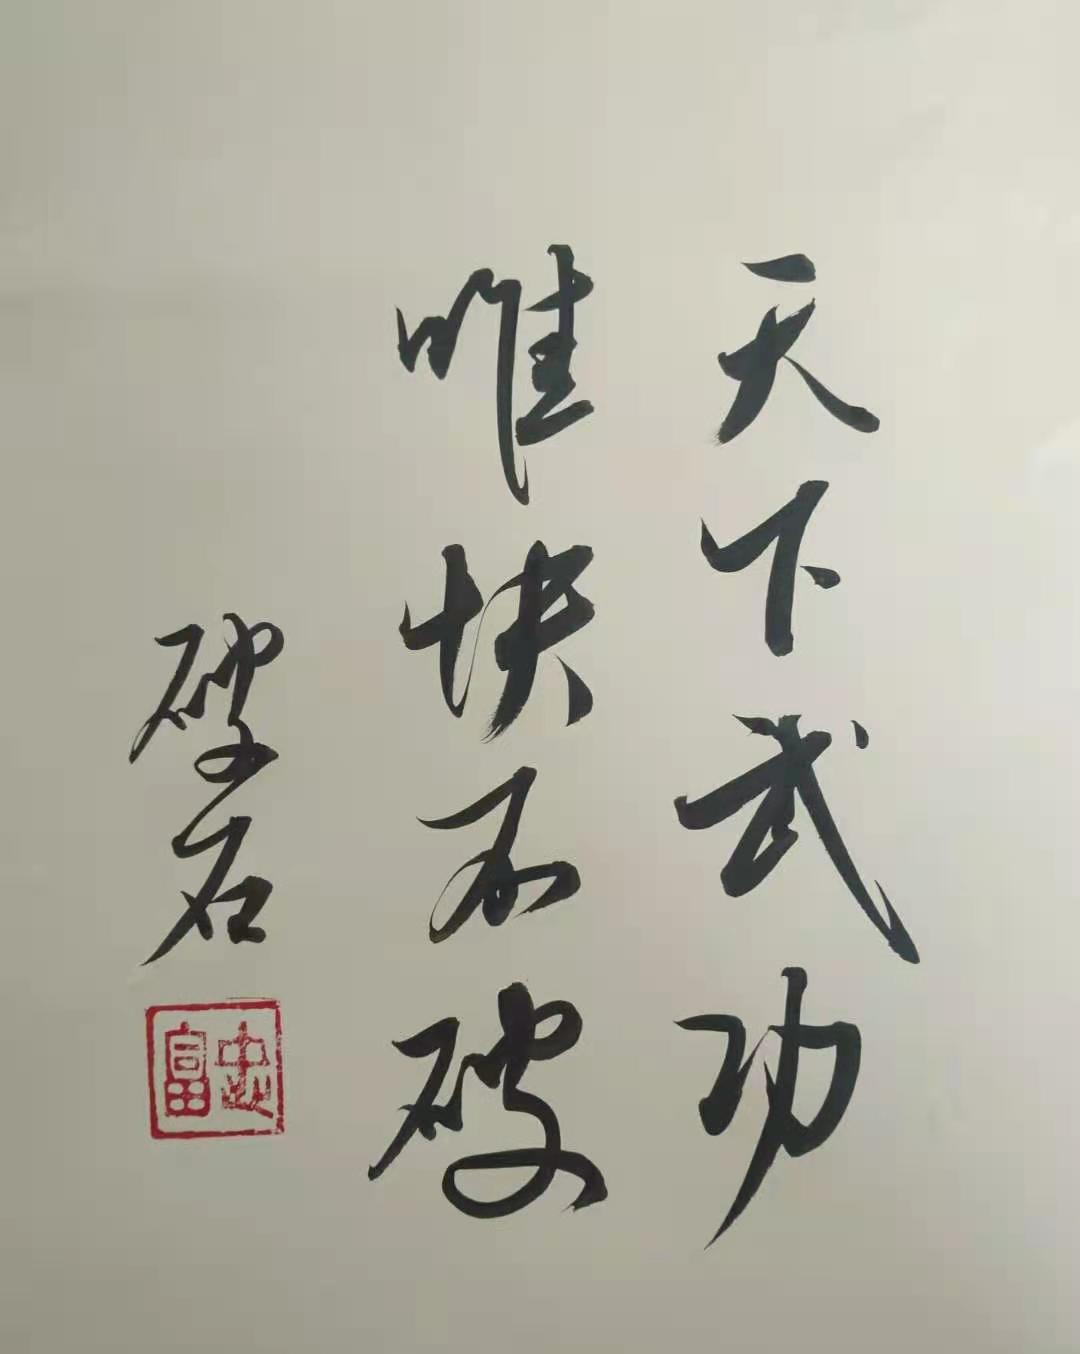 天下武功
唯快不破
破石
忠富